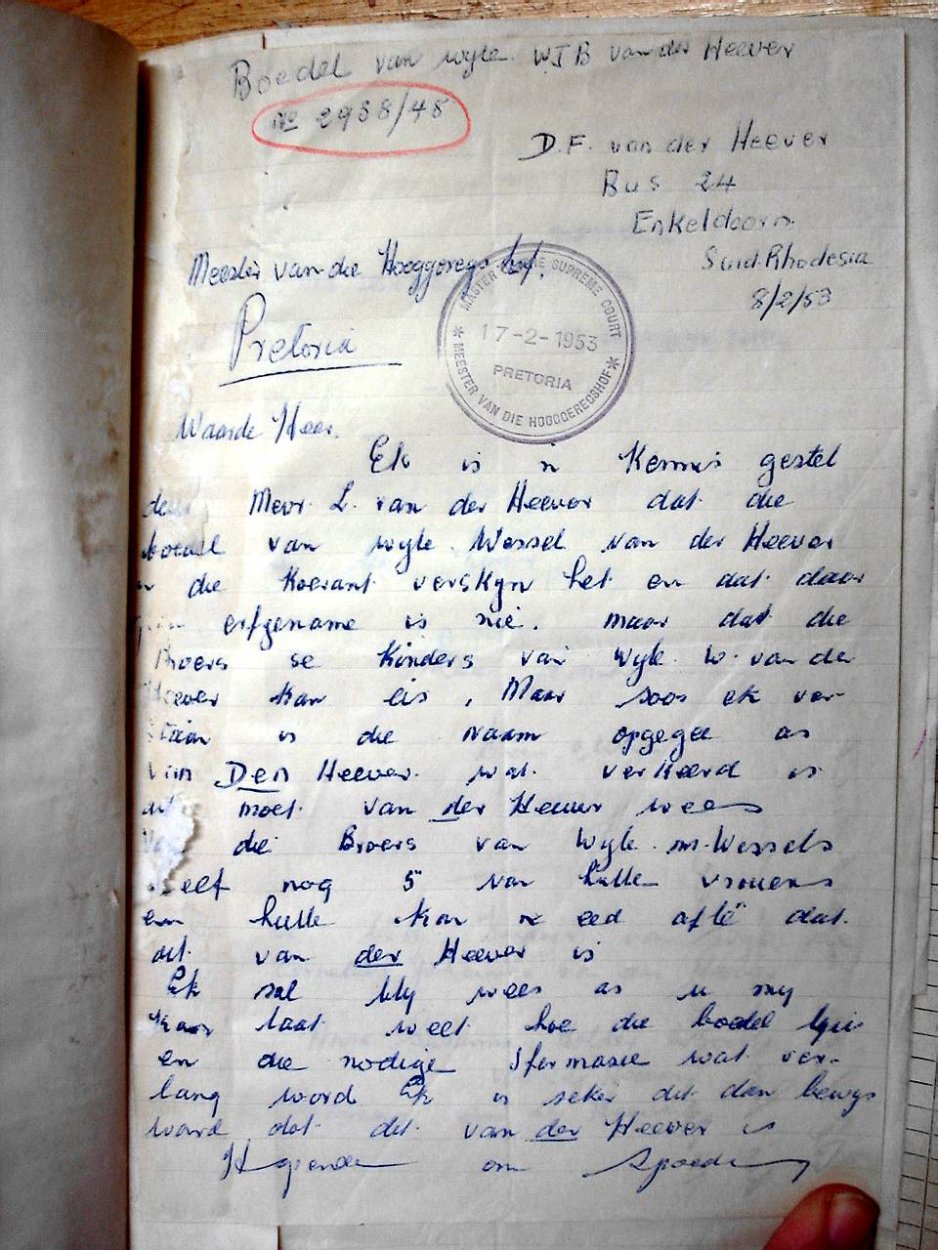 Boedel van wyle W J B van der Heever
No 2938/48
D.F. van der Heever
Bus 24
Enkeldoorn
Suid Rhodesia
8/2/53
Meester van die Hooggeregs hof.
MASTER OF THE SUPREME COURT
17-2-1953
PRETORIA
MEESTER VAN DIE HOOGGEREGSHOF
Pretoria
Waarde Heer.
Ek is in Kennis gestel
deur Mevr. L. van der Heever dat die
boedel van wyle Wessel van der Heever
in die Koerant verskyn het en dat daar
erfgename is nie. maar dat die
Broers se Kinders van Wyle W. van der
Heever kan eis, Maar soos ek ver-
staan is die naam opgegee as
van Den Heever wat verkeerd is
dit moet van der Heever wees
die Broers van Wyle Wessels
leef nog 5 van hulle vrouens
en hulle kan n eed aflê dat
dit van der Heever is
Ek sal bly wees as u my
laat weet hoe die boedel
en die nodige Iformasie wat ver-
lang word Ek is seker dit dan bewys
word dat dit van der Heever is
Hopende om Spoedig